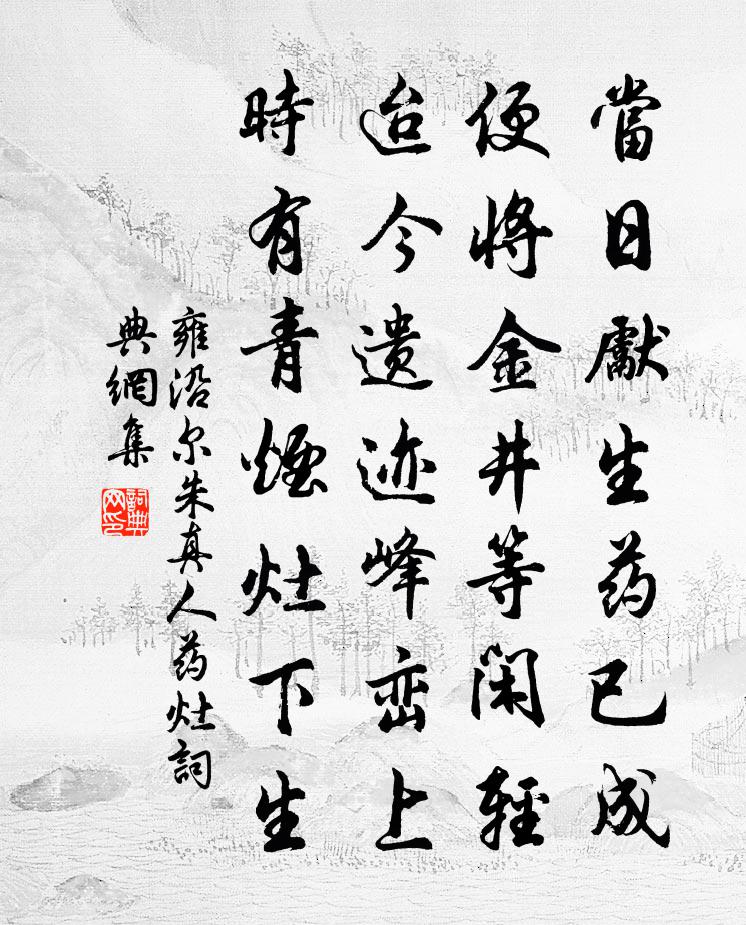 當日獻生药已成
便將金井等闲輕
迨今遗迹峰峦上
時有青煙灶下生
雍沿尔朱真人药灶詞
典網集
詞典网印